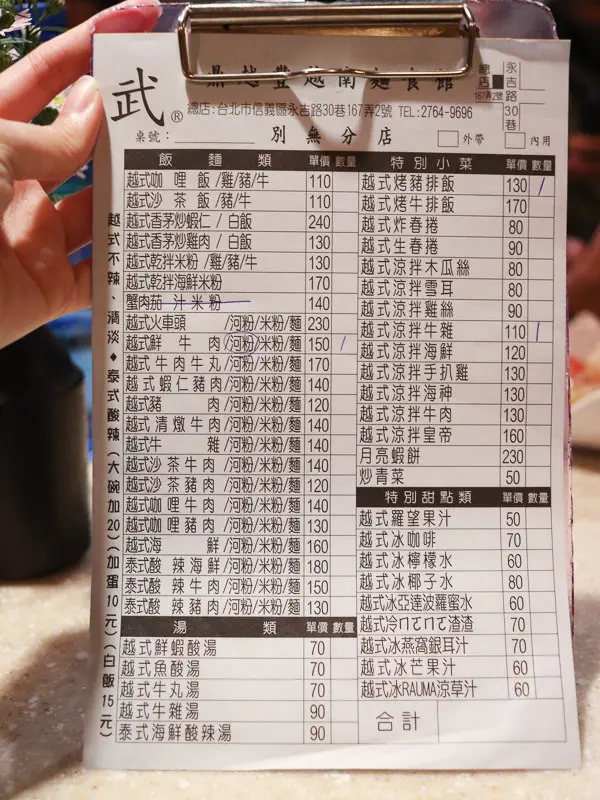 武®
鼎越豐越南麵食館
總店:台北市信義區永吉路30巷167弄2號 TEL:2764-9696
總店 167弄2號
永吉路30巷
桌號:
別無分店
外帶
內用
飯 麵 類 單價 數量
越式咖哩飯/雞/豬/牛 110
越式沙茶飯/豬/牛 110
越式香茅炒蝦仁/白飯 240
越式香茅炒雞肉/白飯 130
越式乾拌米粉/雞/豬/牛 130
越式乾拌海鮮米粉 170
蟹肉茄汁米粉 140
越式火車頭/河粉/米粉/麵 230
越式鮮牛肉/河粉/米粉/麵 150 /
越式牛肉牛丸/河粉/米粉/麵 170
越式蝦仁豬肉/河粉/米粉/麵 140
越式豬肉/河粉/米粉/麵 120
越式清燉牛肉/河粉/米粉/麵 140
越式牛雜/河粉/米粉/麵 140
越式沙茶牛肉/河粉/米粉/麵 140
越式沙茶豬肉/河粉/米粉/麵 120
越式咖哩牛肉/河粉/米粉/麵 140
越式咖哩豬肉/河粉/米粉/麵 130
越式海鮮/河粉/米粉/麵 160
泰式酸辣海鮮/河粉/米粉/麵 180
泰式酸辣牛肉/河粉/米粉/麵 150
泰式酸辣豬肉/河粉/米粉/麵 130
湯 類 單價 數量
越式鮮蝦酸湯 70
越式魚酸湯 70
越式牛丸湯 70
越式牛雜湯 90
泰式海鮮酸辣湯 90
特別小菜 單價 數量
越式烤豬排飯 130 /
越式烤牛排飯 170
越式炸春捲 80
越式生春捲 90
越式涼拌木瓜絲 80
越式涼拌雪耳 80
越式涼拌雞絲 90
越式涼拌牛雜 110 /
越式涼拌海鮮 120
越式涼拌手扒雞 130
越式涼拌海神 130
越式涼拌牛肉 130
越式涼拌皇帝 160
月亮蝦餅 230
炒青菜 50
特別甜點類 單價 數量
越式羅望果汁 50
越式冰咖啡 70
越式冰檸檬水 60
越式冰椰子水 80
越式冰亞達波蘿蜜水 60
越式冷ㄇㄛㄇㄛ渣渣 70
越式冰燕窩銀耳汁 70
越式冰芒果汁 60
越式冰RAUMA涼草汁 60
合計
越式不辣、清淡◆泰式酸辣(大碗加20)(加蛋10元)(白飯15元)